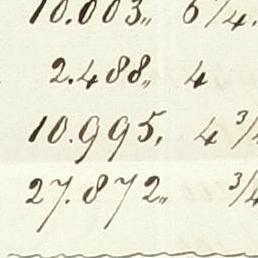 10.003„ 6 1/4.
2.488„ 4
10.995, 4 3/4
27.872„ 3/4